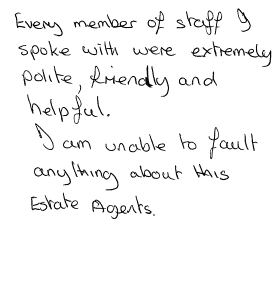 Every member of staff I
spoke with were extremely
polite, friendly and
helpful.
I am unable to fault
anything about this
Estate Agents.